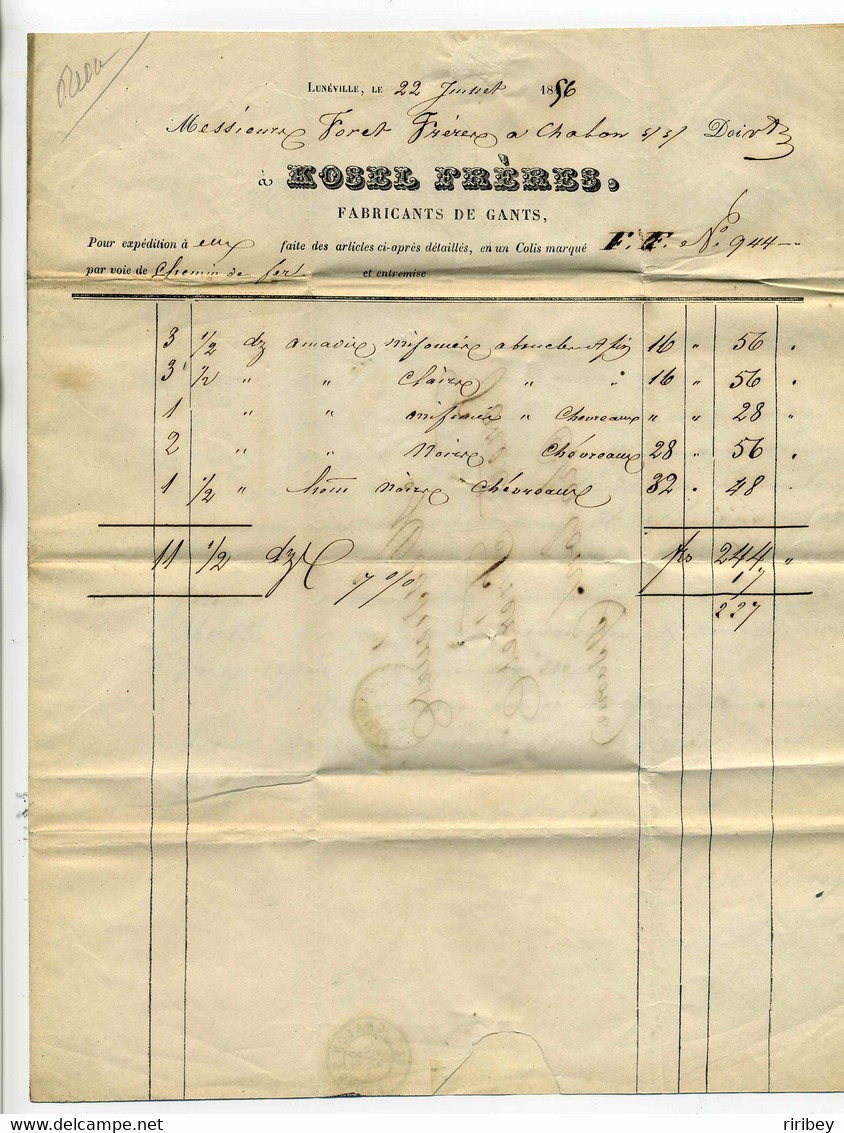 LUNÉVILLE, LE 22 Juillet 1856
Messieurs Foret Frères a Chalon s/s/ Doivt
à KOSEL FRÈRES.
FABRICANTS DE GANTS,
Pour expédition à eux faite des articles ci-après détaillés, en un Colis marqué F. F. N° 944
par voie de Chemin de fer et entremise
3 1/2 dz amadis mifoncés 16 " 56 "
3 1/2 " " Claires " " 16 " 56 "
1 " " mifoncés " Chevreaux " " 28 "
2 " " Noires Chévreaux 28 " 56 "
1 1/2 " hom Noires Chévreaux 32 " 48
11 1/2 dz frs 244 "
7 % 17
227
riribey